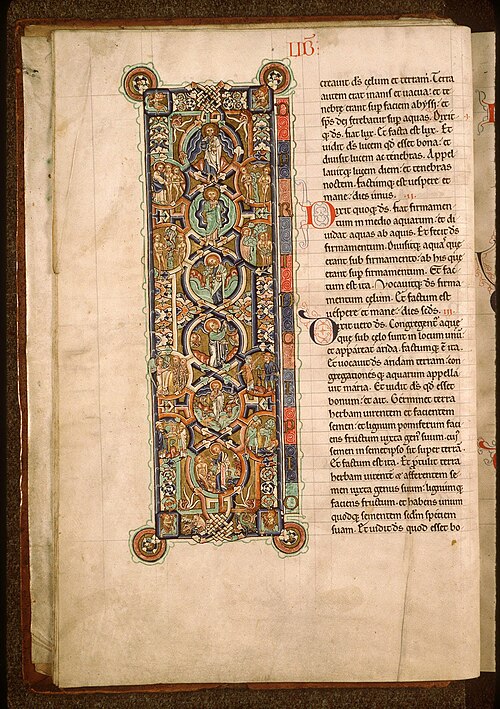 LIB:
creauit ds celum et terram. Terra
autem erat inanis et uacua: et te
nebre erant sup faciem abyssi: et
sps dei ferebatur sup aquas. Dixit
q; ds. fiat lux. Et facta est lux. Et
uidit ds lucem qd esset bona: et
diuisit lucem ac tenebras. Appel
lauitq; lucem diem: et tenebras
noctem. factumq; est uespere et
mane: dies unus. .ii.
Dixit quoq; ds. fiat firmamen
tum in medio aquarum: et di
uidat aquas ab aquis. Et fecit ds
firmamentum. Diuisitq; aquas que
erant sub firmamento: ab his que
erant sup firmamentum. Et fac
tum est ita. Vocauitq; ds firma
mentum celum. Et factum est
uespere et mane: dies scds. .iii.
Dixit uero ds. Congregent aque
que sub celo sunt in locum unu:
et appareat arida. factumq; e ita.
Et uocauit ds aridam terram: con
gregationesq; aquarum appella
uit maria. Et uidit ds qd esset
bonum: et ait. Germinet terra
herbam uirentem et facientem
semen: et lignum pomiferum faci
ens fructum iuxta gen suum. cui
semen in semetipso sit super terra.
Et factum est ita. Et protulit terra
herbam uirente et afferentem se
men iuxta genus suum: lignumq;
faciens fructum. et habens unum
quodq; sementem scdm speciem
suam. Et uidit ds quod esset bo